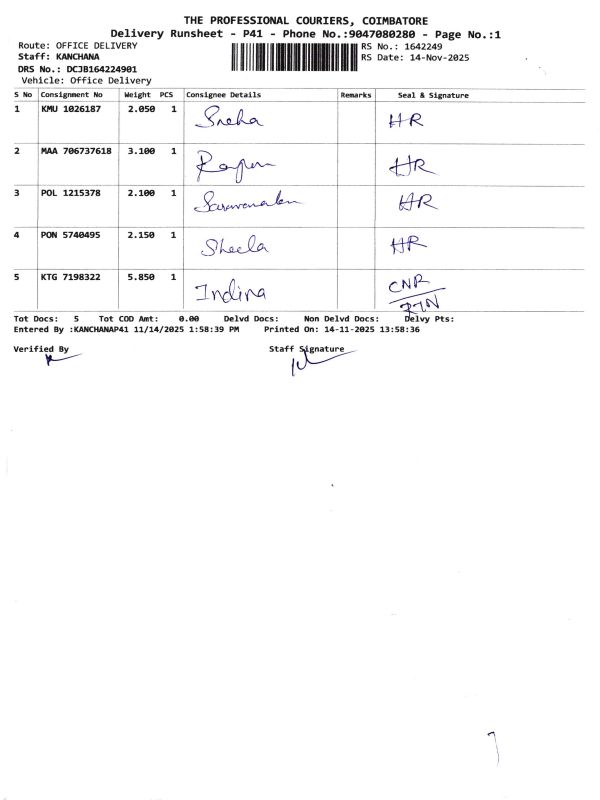 THE PROFESSIONAL COURIERS, COIMBATORE
Delivery Runsheet - P41 - Phone No.:9047080280 - Page No.:1
Route: OFFICE DELIVERY RS No.: 1642249
Staff: KANCHANA RS Date: 14-Nov-2025
DRS No.: DCJB164224901
Vehicle: Office Delivery
S No Consignment No Weight PCS Consignee Details Remarks Seal & Signature
1 KMU 1026187 2.050 1 Sneha HR
2 MAA 706737618 3.100 1 HR
3 POL 1215378 2.100 1 HR
4 PON 5740495 2.150 1 Sheela HR
5 KTG 7198322 5.850 1 Indira CNR
RTN
Tot Docs: 5 Tot COD Amt: 0.00 Delvd Docs: Non Delvd Docs: Delvy Pts:
Entered By :KANCHANAP41 11/14/2025 1:58:39 PM Printed On: 14-11-2025 13:58:36
Verified By Staff Signature